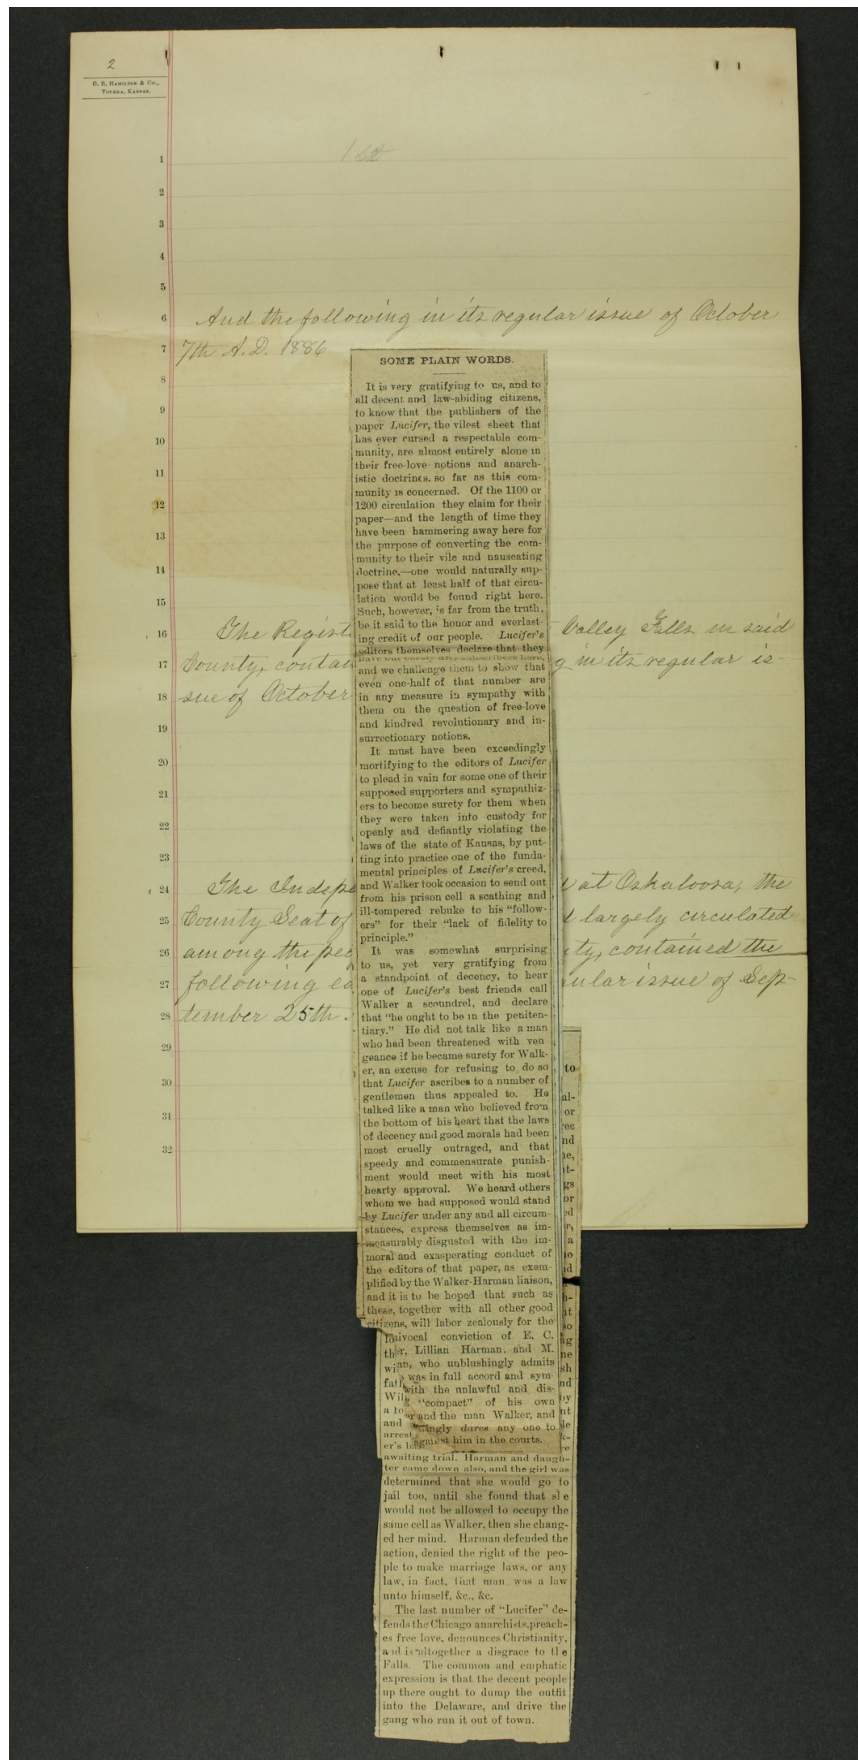 2
C. B. HAMILTON & CO.,
TOPEKA, KANSAS.
1st
1
2
3
4
5
6 And the following in its regular issue of October
7 7th A.D. 1886
8
9
10
11
12
13
14
15
16 The Regist Valley Falls in said
17 County, contain g in its regular is-
18 sue of October
19
20
21
22
23
24 The Indepe at Oskaloosa, the
25 County Seat of largely circulated
26 among the peo ty, contained the
27 following ed ular issue of Sep-
28 tember 25th
29
30
31
32
SOME PLAIN WORDS.
It is very gratifying to us, and to
all decent and law-abiding citizens,
to know that the publishers of the
paper Lucifer, the vilest sheet that
has ever cursed a respectable com-
munity, are almost entirely alone in
their free-love notions and anarch-
istic doctrines, so far as this com-
munity is concerned. Of the 1100 or
1200 circulation they claim for their
paper—and the length of time they
have been hammering away here for
the purpose of converting the com-
munity to their vile and nauseating
doctrine,—one would naturally sup-
pose that at least half of that circu-
lation would be found right here.
Such, however, is far from the truth,
be it said to the honor and everlast-
ing credit of our people. Lucifer's
editors themselves declare that they
have but subscribers here,
and we challenge them to show that
even one-half of that number are
in any measure in sympathy with
them on the question of free-love
and kindred revolutionary and in-
surrectionary notions.
It must have been exceedingly
mortifying to the editors of Lucifer
to plead in vain for some one of their
supposed supporters and sympathiz-
ers to become surety for them when
they were taken into custody for
openly and defiantly violating the
laws of the state of Kansas, by put-
ting into practice one of the funda-
mental principles of Lucifer's creed,
and Walker took occasion to send out
from his prison cell a scathing and
ill-tempered rebuke to his "follow-
ers" for their "lack of fidelity to
principle."
It was somewhat surprising
to us, yet very gratifying from
a standpoint of decency, to hear
one of Lucifer's best friends call
Walker a scoundrel, and declare
that "he ought to be in the peniten-
tiary." He did not talk like a man
who had been threatened with ven
geance if he became surety for Walk-
er, an excuse for refusing to do so
that Lucifer ascribes to a number of
gentlemen thus appealed to. He
talked like a man who believed from
the bottom of his heart that the laws
of decency and good morals had been
most cruelly outraged, and that
speedy and commensurate punish-
ment would meet with his most
hearty approval. We heard others
whom we had supposed would stand
by Lucifer under any and all circum-
stances, express themselves as im-
measurably disgusted with the im-
moral and exasperating conduct of
the editors of that paper, as exem-
plified by the Walker-Harman liaison,
and it is to be hoped that such as
these, together with all other good
citizens, will labor zealously for the
uivocal conviction of E. C.
er, Lillian Harman, and M.
an, who unblushingly admits
was in full accord and sym-
with the unlawful and dis-
"compact" of his own
er and the man Walker, and
ingly dares any one to
against him in the courts.
awaiting trial. Harman and daugh-
ter came down also, and the girl was
determined that she would go to
jail too, until she found that she
would not be allowed to occupy the
same cell as Walker, then she chang-
ed her mind. Harman defended the
action, denied the right of the peo-
ple to make marriage laws, or any
law, in fact, that man was a law
unto himself, &c., &c.
The last number of "Lucifer" de-
fends the Chicago anarchists, preach-
es free love, denounces Christianity,
and is altogether a disgrace to the
Falls. The common and emphatic
expression is that the decent people
up there ought to dump the outfit
into the Delaware, and drive the
gang who run it out of town.